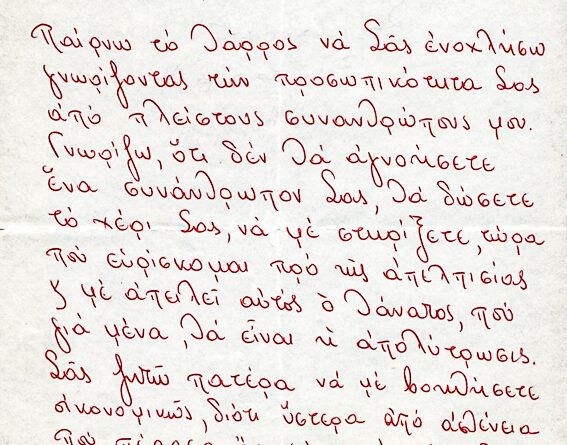 Παίρνω τὸ θάρρος νά Σᾶς ἐνοχλήσω
γνωρίζοντας τήν προσωπικότητα Σας
ἀπό πλείστους συνανθρώπους μου.
Γνωρίζω, ὅτι δέν θά ἀγνοήσετε
ἕνα συνάνθρωπον Σας, θά δώσετε
τό χέρι Σας, νά μέ στηρίζετε, τώρα
πού εὑρίσκομαι πρό τῆς ἀπελπισίας
ϗ μέ ἀπειλεῖ αὐτός ὁ θάνατος, πού
γιά μένα, θά εἶναι ἡ ἀπολύτρωσις.
Σᾶς ζητῶ πατέρα νά μέ βοηθήσετε
οἰκονομικῶς, διότι ὕστερα ἀπό ἀσθένεια
πού